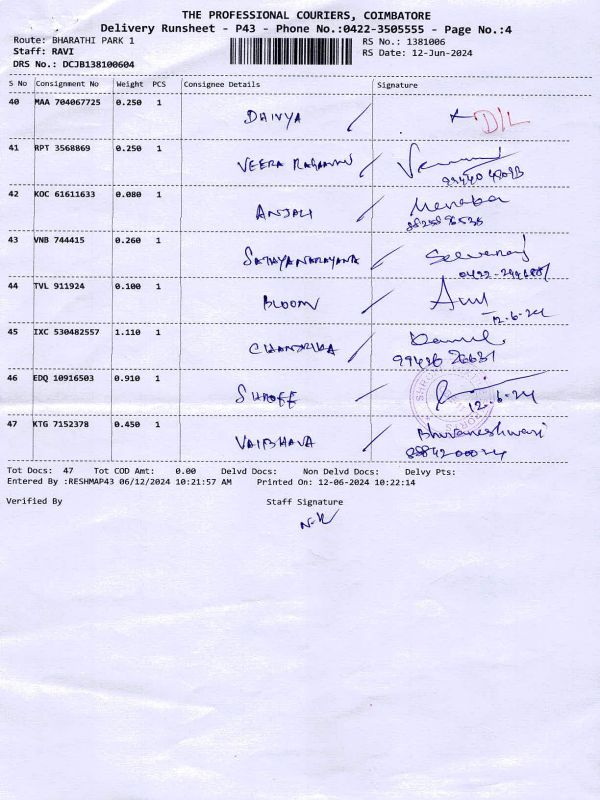 THE PROFESSIONAL COURIERS, COIMBATORE
Delivery Runsheet - P43 - Phone No.:0422-3505555 - Page No.:4
Route: BHARATHI PARK 1 RS No.: 1381006
Staff: RAVI RS Date: 12-Jun-2024
DRS No.: DCJB138100604
S No Consignment No Weight PCS Consignee Details Signature
40 MAA 704067725 0.250 1 DHIVYA D/L
41 RPT 3568869 0.250 1 VEERA
42 KOC 61611633 0.080 1 ANJALI
43 VNB 744415 0.260 1 SATHYANARAYANA
44 TVL 911924 0.100 1 BLOOM 12-6-24
45 IXC 530482557 1.110 1 CHANDRIKA
46 EDQ 10916503 0.910 1 SHROFF 12.6.24
47 KTG 7152378 0.450 1 VAIBHAVA Bhuvaneshwari
Tot Docs: 47 Tot COD Amt: 0.00 Delvd Docs: Non Delvd Docs: Delvy Pts:
Entered By :RESHMAP43 06/12/2024 10:21:57 AM Printed On: 12-06-2024 10:22:14
Verified By Staff Signature